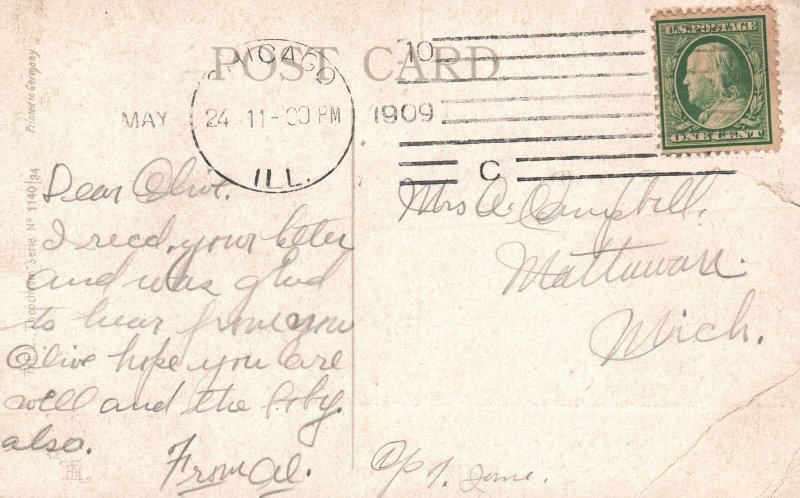 POST CARD
CHICAGO
MAY 24 11-30 PM 1909
ILL.
10
C
U.S. POSTAGE
ONE CENT
Printed in Germany
Serie Nº 1140/34
Dear Olive.
I recd, your letter
and was glad
to hear from you
Olive hope you are
well and the baby.
also.
From Al.
Mrs A. Campbell.
Mattawan.
Mich.